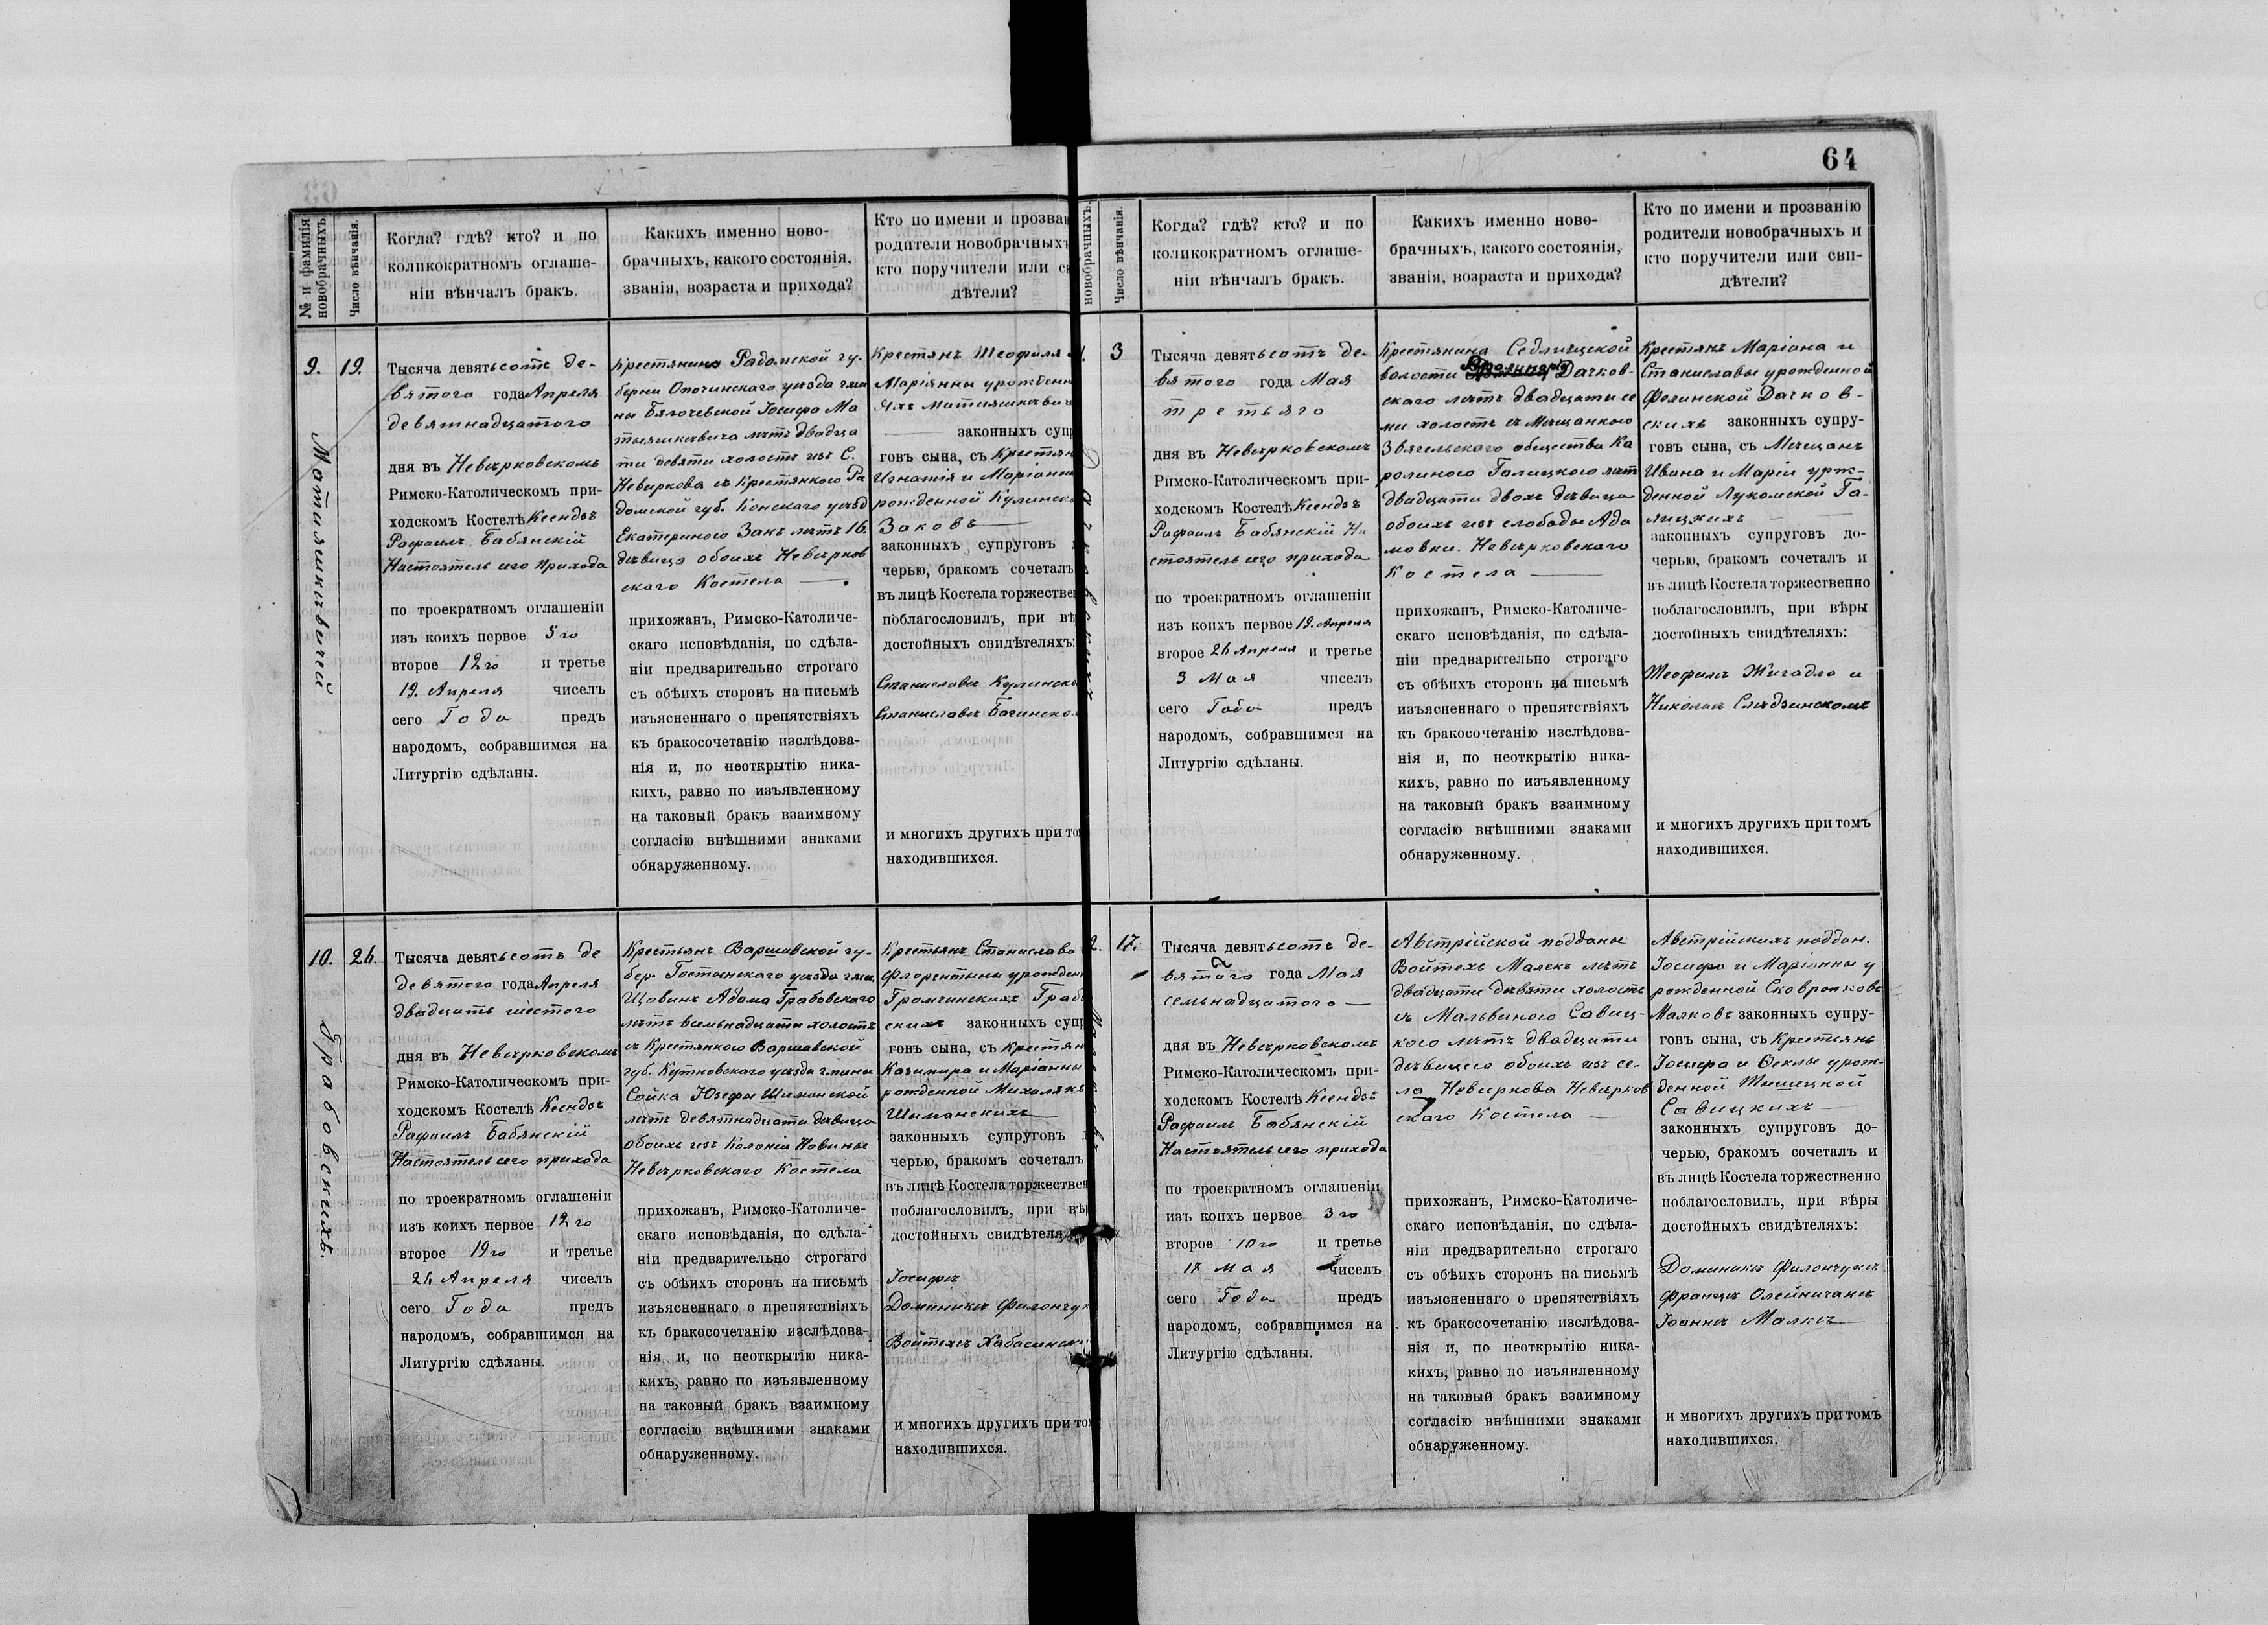 64
№ и фамилія
новобрачныхъ
Число вѣнчанія.
Когда? гдѣ? кто? и по
коликократномъ оглаше-
ніи вѣнчалъ бракъ.
Какихъ именно ново-
брачныхъ, какого состоянія,
званія, возраста и прихода?
Кто по имени и прозван
родители новобрачныхъ
кто поручители или с
дѣтели?
9.
Матияшкѣвичей
19.
Тысяча девятьсотъ де-
вятого года Апреля
девятнадцатого
дня въ Невѣрковскомъ
Римско-Католическомъ при-
ходскомъ Костелѣ Ксендзъ
Рафаилъ Бабянскій
Настоятель сего прихода
по троекратномъ оглашеніи
изъ коихъ первое 5го
второе 12го и третье
19. Апреля чиселъ
сего Года предъ
народомъ, собравшимся на
Литургію сдѣланы.
Крестянина Радомской гу-
берни Опочинскаго уѣзда гми
ны Бялочевской Іосифа Ма
тыяшкѣвича лѣтъ двадца
ти девяти холостъ изъ С.
Невиркова съ Крестянкою Ра
домской губ. Конскаго уѣзд
Екатериною Закъ лѣтъ 16.
дѣвица обоихъ Невѣрков
скаго Костела
прихожанъ, Римско-Католиче-
скаго исповѣданія, по сдѣла-
ніи предварительно строгаго
съ обѣихъ сторонъ на письмѣ
изъясненнаго о препятствіяхъ
къ бракосочетанію изслѣдова-
нія и, по неоткрытію ника-
кихъ, равно по изъявленному
на таковый бракъ взаимному
согласію внѣшними знаками
обнаруженному.
Крестянъ Теофиля
Маріянны урожденн
Матияшкѣви
законныхъ суп
говъ сына, съ Крестян
Игнатія и Маріанны
рожденной Кулинск
Заковъ
законныхъ супруговъ
черью, бракомъ сочеталъ
въ лицѣ Костела торжестве
поблагословилъ, при вѣ
достойныхъ свидѣтеляхъ:
Станиславъ Кулинск
Станиславъ Багинско
и многихъ другихъ при то
находившихся.
10.
Грабовскихъ.
26.
Тысяча девятьсотъ де
девятого года Апреля
двадцать шестого
дня въ Невѣрковскомъ
Римско-Католическомъ при-
ходскомъ Костелѣ Ксендзъ
Рафаилъ Бабянскій
Настоятель сего прихода
по троекратномъ оглашеніи
изъ коихъ первое 12го
второе 19го и третье
26 Апреля чиселъ
сего Года предъ
народомъ, собравшимся на
Литургію сдѣланы.
Крестьянъ Варшавской гу-
бер. Гостынскаго уѣзда гми.
Щавинъ Адама Грабовскаго
лѣтъ восьмнадцати холостъ
съ Крестянкою Варшавской
губ. Кутновскаго уѣзда гмины
Сойка Юзефы Шиманской
лѣтъ девятнадцати дѣвица
обоихъ изъ Колоніи Новины
Невѣрковскаго Костела
прихожанъ, Римско-Католиче-
скаго исповѣданія, по сдѣла-
ніи предварительно строгаго
съ обѣихъ сторонъ на письмѣ
изъясненнаго о препятствіяхъ
къ бракосочетанію изслѣдова-
нія и, по неоткрытію ника-
кихъ, равно по изъявленному
на таковый бракъ взаимному
согласію внѣшними знаками
обнаруженному.
Крестьянъ Станислава
Флорентыны урожден
Громчинскихъ Граб
скихъ законныхъ супр
говъ сына, съ Крестян
Казимира и Маріанны
рожденной Михалякъ
Шыманскихъ
законныхъ супруговъ
черью, бракомъ сочеталъ
въ лицѣ Костела торжестве
поблагословилъ, при вѣ
достойныхъ свидѣтеля
Іосифъ
Доминикъ Филончу
Войтехъ Хабасинск
и многихъ другихъ при то
находившихся.
новобрачныхъ.
Число вѣнчанія.
Когда? гдѣ? кто? и по
коликократномъ оглаше-
ніи вѣнчалъ бракъ.
Какихъ именно ново-
брачныхъ, какого состоянія,
званія, возраста и прихода?
Кто по имени и прозванію
родители новобрачныхъ и
кто поручители или сви-
дѣтели?
3
Тысяча девятьсотъ де-
вятого года Мая
третьяго
дня въ Невѣрковскомъ
Римско-Католическомъ при-
ходскомъ Костелѣ Ксендзъ
Рафаилъ Бабянскій На
стоятель сего прихода
по троекратномъ оглашеніи
изъ коихъ первое 19. Апреля
второе 26 Апреля и третье
3 Мая чиселъ
сего Года предъ
народомъ, собравшимся на
Литургію сдѣланы.
Крестянина Седлищской
волости Дачков-
скаго лѣтъ двадцати се
ми холостъ съ Мещанкою
Звягельскаго общества Ка
ролиною Галицкого лѣт
двадцати двохъ дѣвица
обоихъ изъ слободы Ада
мовки. Невѣрковскаго
Костела
прихожанъ, Римско-Католиче-
скаго исповѣданія, по сдѣла-
ніи предварительно строгаго
съ обѣихъ сторонъ на письмѣ
изъясненнаго о препятствіяхъ
къ бракосочетанію изслѣдова-
нія и, по неоткрытію ника-
кихъ, равно по изъявленному
на таковый бракъ взаимному
согласію внѣшними знаками
обнаруженному.
Крестянъ Маріана и
Станиславы урожденной
Фелинской Дачков-
скихъ законныхъ супру-
говъ сына, съ Мещанъ
Ивана и Маріи урж-
денной Лукомской Га-
лицкихъ
законныхъ супруговъ до-
черью, бракомъ сочеталъ и
въ лицѣ Костела торжественно
поблагословилъ, при вѣры
достойныхъ свидѣтеляхъ:
Теофилъ Жигадло и
Николай Слѣдзинскомъ
и многихъ другихъ при томъ
находившихся.
2.
17.
Тысяча девятьсотъ де-
вятого года Мая
семьнадцатого
дня въ Невѣрковскомъ
Римско-Католическомъ при-
ходскомъ Костелѣ Ксендзъ
Рафаилъ Бабянскій
Настоятель сего прихода
по троекратномъ оглашеніи
изъ коихъ первое 3го
второе 10го и третье
17 Мая чиселъ
сего Года предъ
народомъ, собравшимся на
Литургію сдѣланы.
Австрійской подданы
Войтехъ Малекъ лѣтъ
двадцати девяти холостъ
съ Мальвиною Савиц-
кого лѣтъ двадцати
дѣвицею обоихъ изъ се-
ла Невиркова Невѣрков
скаго Костела
прихожанъ, Римско-Католиче-
скаго исповѣданія, по сдѣла-
ніи предварительно строгаго
съ обѣихъ сторонъ на письмѣ
изъясненнаго о препятствіяхъ
къ бракосочетанію изслѣдова-
нія и, по неоткрытію ника-
кихъ, равно по изъявленному
на таковый бракъ взаимному
согласію внѣшними знаками
обнаруженному.
Австрійскихъ поддан.
Іосифа и Маріанны у
рожденной Сковронковъ
Малковъ законныхъ супру-
говъ сына, съ Крестьянъ
Іосифа и Ѳеклы урож-
денной Тышецкой
Савицкихъ
законныхъ супруговъ до-
черью, бракомъ сочеталъ и
въ лицѣ Костела торжественно
поблагословилъ, при вѣры
достойныхъ свидѣтеляхъ:
Доминикъ Филончукъ
Францъ Олейничакъ
Іоаннъ Малкъ
и многихъ другихъ при томъ
находившихся.